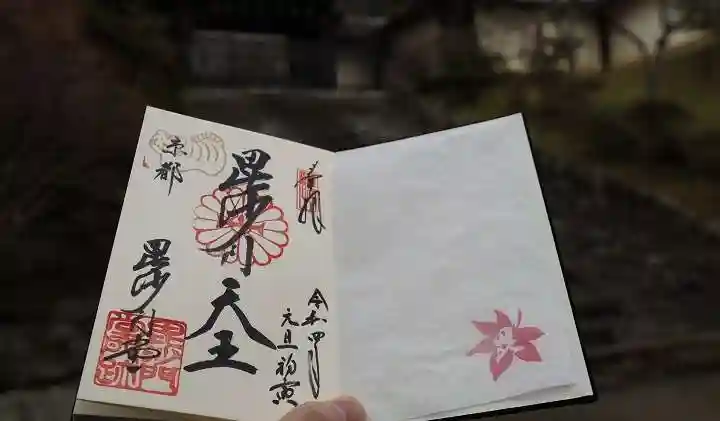 奉拝
令和四年
元旦初寅
毘沙門
天王
京都
毘沙門堂